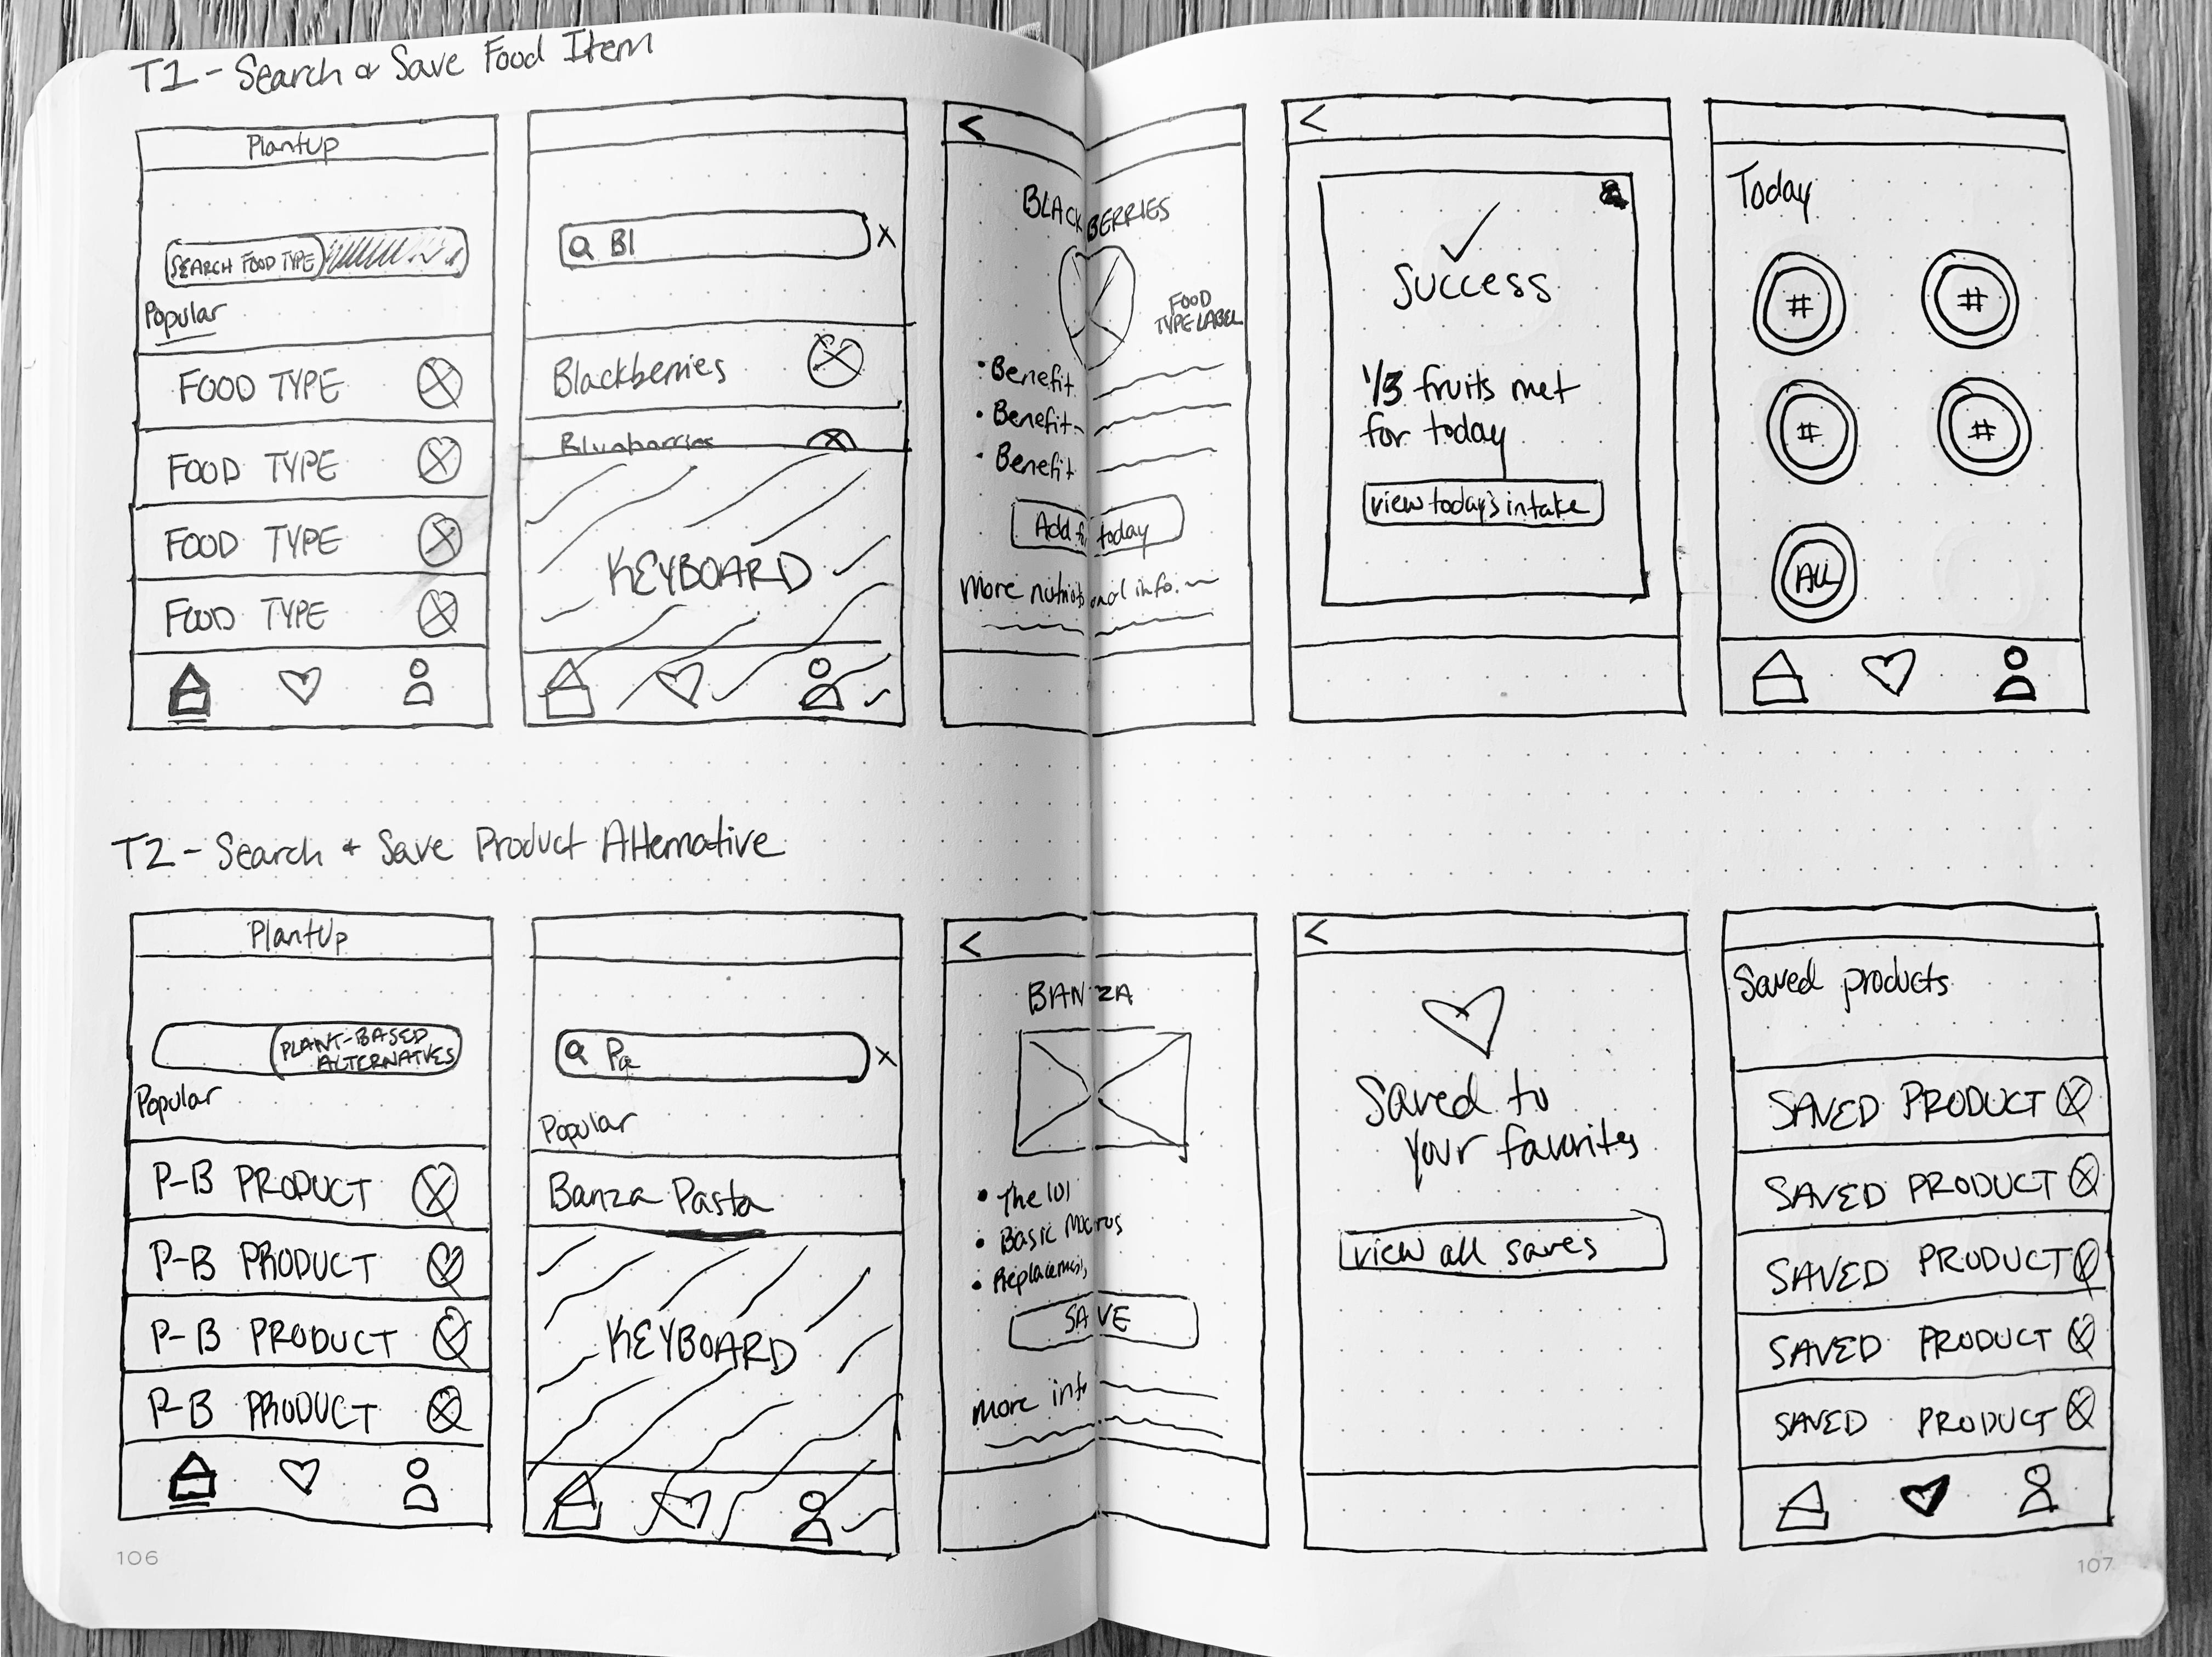 T1 - Search & Save Food Item
PlantUp
SEARCH FOOD TYPE
Popular
FOOD TYPE
FOOD TYPE
FOOD TYPE
FOOD TYPE
Bl
Blackberries
Blueberries
KEYBOARD
BLACKBERRIES
FOOD
TYPE LABEL
• Benefit
• Benefit
• Benefit
Add for today
More nutritional info.
Success
1/3 fruits met
for today
view today's intake
Today
#
#
#
#
ALL
T2 - Search & Save Product Alternative
PlantUp
PLANT-BASED
ALTERNATVES
Popular
P-B PRODUCT
P-B PRODUCT
P-B PRODUCT
P-B PRODUCT
Pa
Popular
Banza Pasta
KEYBOARD
BANZA
• The 101
• Basic Macros
• Replacements
SAVE
more info
Saved to
your favorites
view all saves
Saved products
SAVED PRODUCT
SAVED PRODUCT
SAVED PRODUCT
SAVED PRODUCT
SAVED PRODUCT
106
107